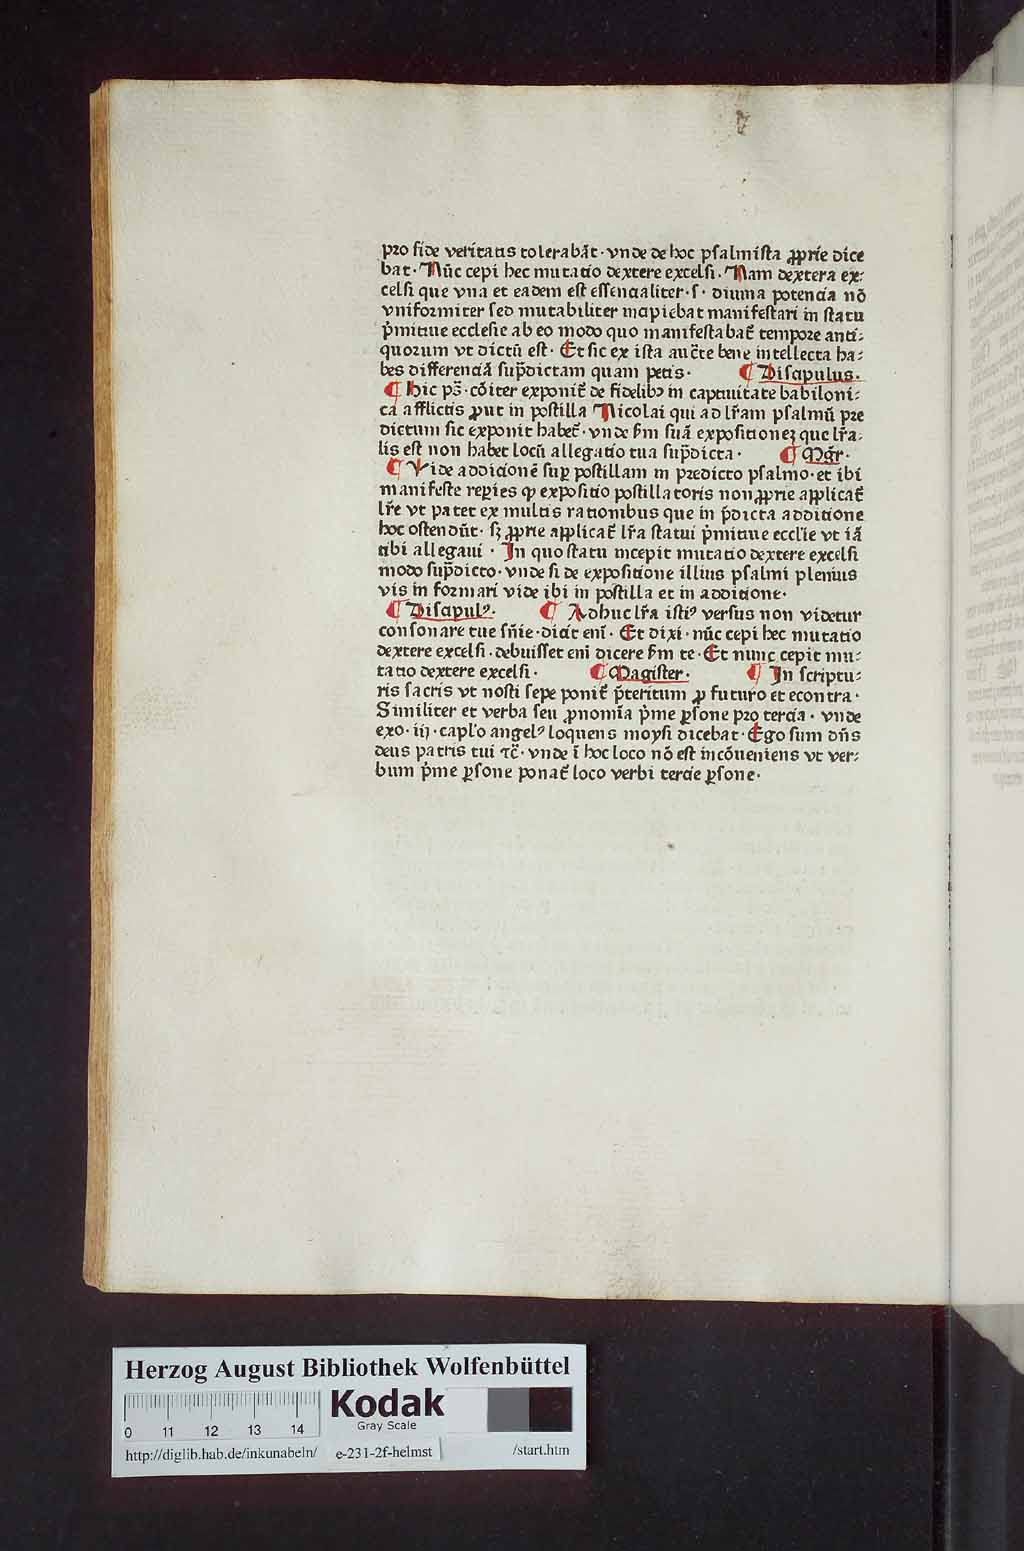 pro fide veritatis tolerabāt · vnde de hoc psalmista ꝓprie dice
bat · Nūc cepi hec mutatio dextere excelsi · Nam dextera ex⸗
celsi que vna et eadem est essencialiter · s · diuina potencia nō
vniformiter sed mutabiliter incipiebat manifestari in statu
p̄mitiue ecclesie ab eo modo quo manifestabat̄ tempore anti⸗
quorum vt dictū est · Et sic ex ista auct̄e bene intellecta ha⸗
bes differenciā sup̄dictam quam petis · ¶ Discipulus ·
¶ Hic ps̄ · cōiter exponit̄ de fidelibꝰ in captiuitate babiloni⸗
ca afflictis ꝓut in postilla Nicolai qui ad lr̄am psalmū pre
dictum sic exponit habet̄ · vnde ẜm suā expositioneꝫ que lr̄a⸗
lis est non habet locū allegatio tua sup̄dicta · ¶ Mgr̄ ·
¶ Vide additionē suꝑ postillam in predicto psalmo · et ibi
manifeste reꝑies ꝙ expositio postillatoris non ꝓprie applicat̄
lr̄e vt patet ex multis rationibus que in p̄dicta additione
hoc ostendūt · sꝫ ꝓprie applicat̄ lr̄a statui p̄mitiue eccl̄ie vt iā
tibi allegaui · In quo statu incepit mutatio dextere excelsi
modo sup̄dicto · vnde si de expositione illius psalmi plenius
vis informari vide ibi in postilla et in additione ·
¶ Discipulꝰ · ¶ Adhuc lr̄a istiꝰ versus non videtur
consonare tue sn̄ie · dicit enī · Et dixi · nūc cepi hec mutatio
dextere excelsi · debuisset enī dicere ẜm te · Et nunc cepit mu⸗
tatio dextere excelsi · ¶ Magister · ¶ In scriptu⸗
ris sacris vt nosti sepe ponit̄ p̄teritum ꝓ futuro et econtra ·
Similiter et verba seu ꝓnomīa p̄me ꝑsone pro tercia · vnde
exo · iij · capl̄o angelꝰ loquens moysi dicebat · Ego sum dn̄s
deus patris tui ⁊c̄ · vnde ī hoc loco nō est incōueniens vt ver⸗
bum p̄me ꝑsone ponat̄ loco verbi tercie ꝑsone ·
Herzog August Bibliothek Wolfenbüttel
Kodak
Gray Scale
0 11 12 13 14
http://diglib.hab.de/inkunabeln/ e-231-2f-helmst /start.htm